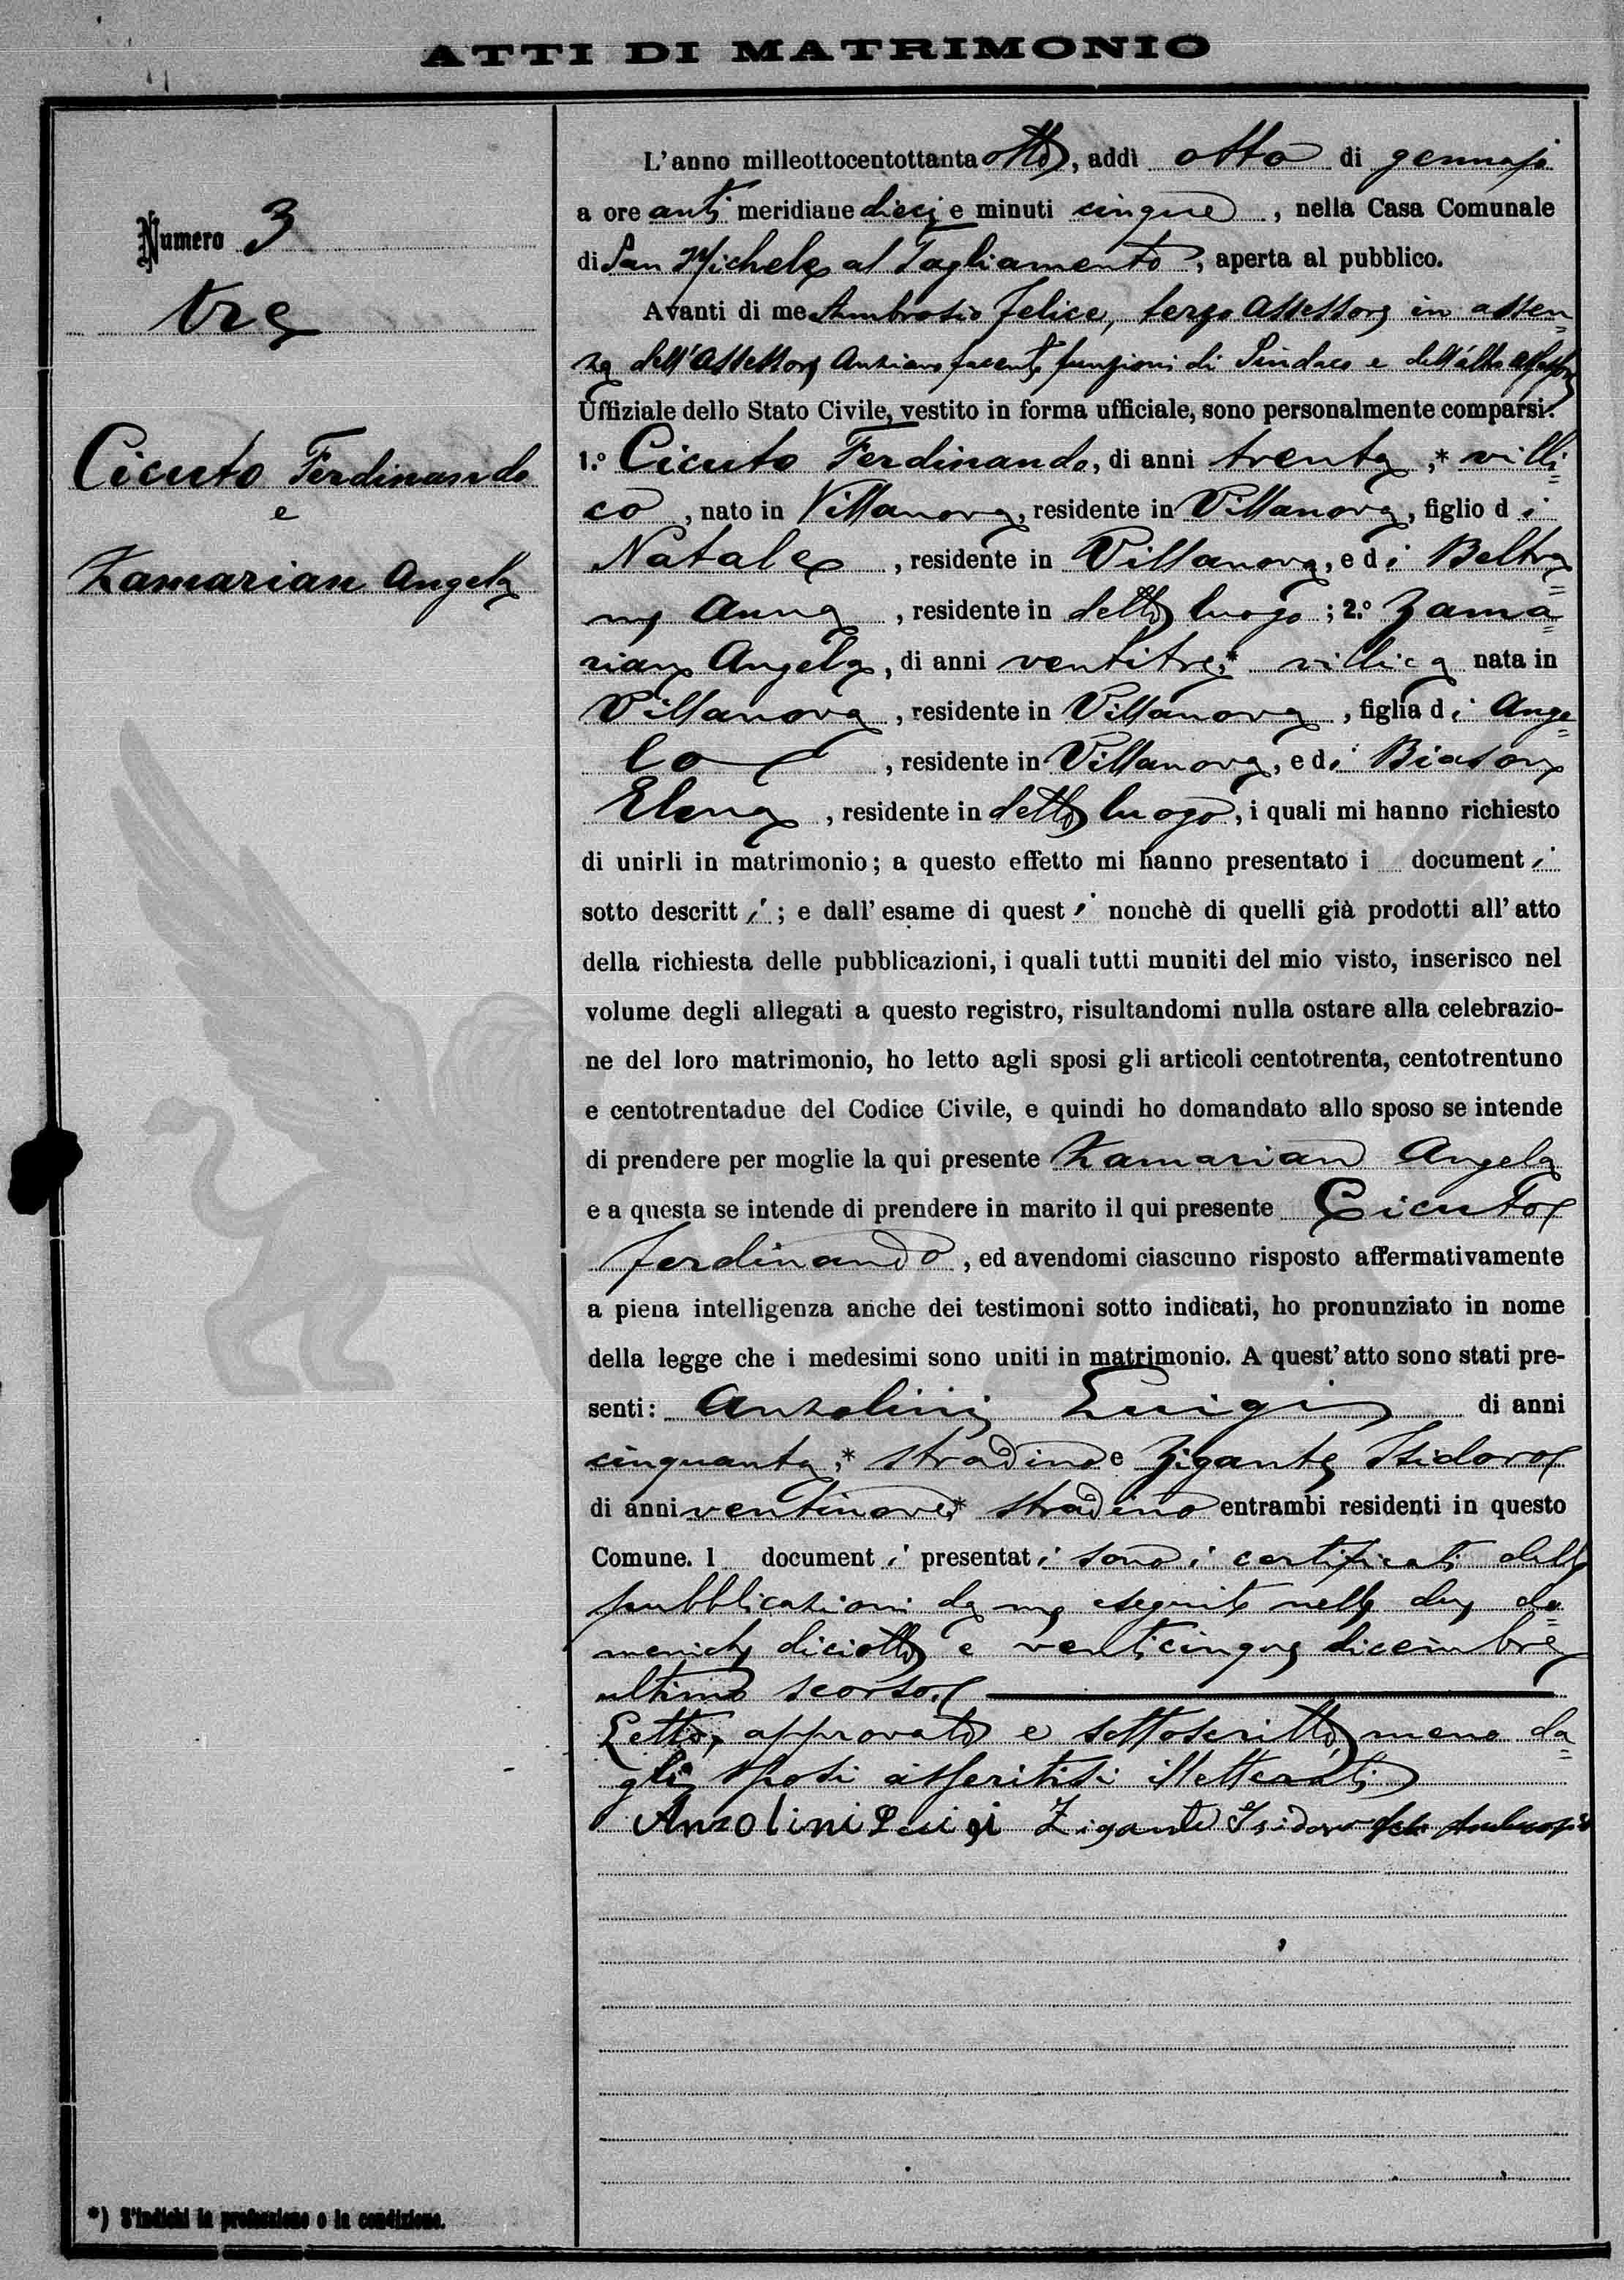 ATTI DI MATRIMONIO
Numero 3
tre
Cicuto Ferdinando
e
Zamarian Angela
L'anno milleottocentottanta otto, addì otto di gennajo
a ore anti meridiane dieci e minuti cinque, nella Casa Comunale
di San Michele al Tagliamento, aperta al pubblico.
Avanti di me Ambrosio Felice, terzo Assessore in assen=
za dell'Assessore Anziano facente funzioni di Sindaco e dell'altro Assessore
Uffiziale dello Stato Civile, vestito in forma ufficiale, sono personalmente comparsi:
1.° Cicuto Ferdinando, di anni trenta,* villi=
co, nato in Villanova, residente in Villanova, figlio di
Natale, residente in Villanova, e di Beltra=
me Anna, residente in detto luogo; 2.° Zama=
rian Angela, di anni ventitre,* villica nata in
Villanova, residente in Villanova, figlia di Ange=
lo, residente in Villanova, e di Biason
Elena, residente in detto luogo, i quali mi hanno richiesto
di unirli in matrimonio; a questo effetto mi hanno presentato i documenti
sotto descritti; e dall'esame di questi nonchè di quelli già prodotti all'atto
della richiesta delle pubblicazioni, i quali tutti muniti del mio visto, inserisco nel
volume degli allegati a questo registro, risultandomi nulla ostare alla celebrazio-
ne del loro matrimonio, ho letto agli sposi gli articoli centotrenta, centotrentuno
e centotrentadue del Codice Civile, e quindi ho domandato allo sposo se intende
di prendere per moglie la qui presente Zamarian Angela
e a questa se intende di prendere in marito il qui presente Cicuto
Ferdinando, ed avendomi ciascuno risposto affermativamente
a piena intelligenza anche dei testimoni sotto indicati, ho pronunziato in nome
della legge che i medesimi sono uniti in matrimonio. A quest'atto sono stati pre-
senti: Anzolini Luigi di anni
cinquanta,* stradino e Zigante Isidoro
di anni ventinove,* stradino entrambi residenti in questo
Comune. I documenti presentati sono i certificati delle
pubblicazioni da me eseguite nelle due do=
meniche diciotto e venticinque dicembre
ultimo scorso.
Letto, approvato e sottoscritto meno da=
gli sposi assertisi illetterati
Anzolini Luigi Zigante Isidoro Felice Ambrosio
*) S'indichi la professione o la condizione.